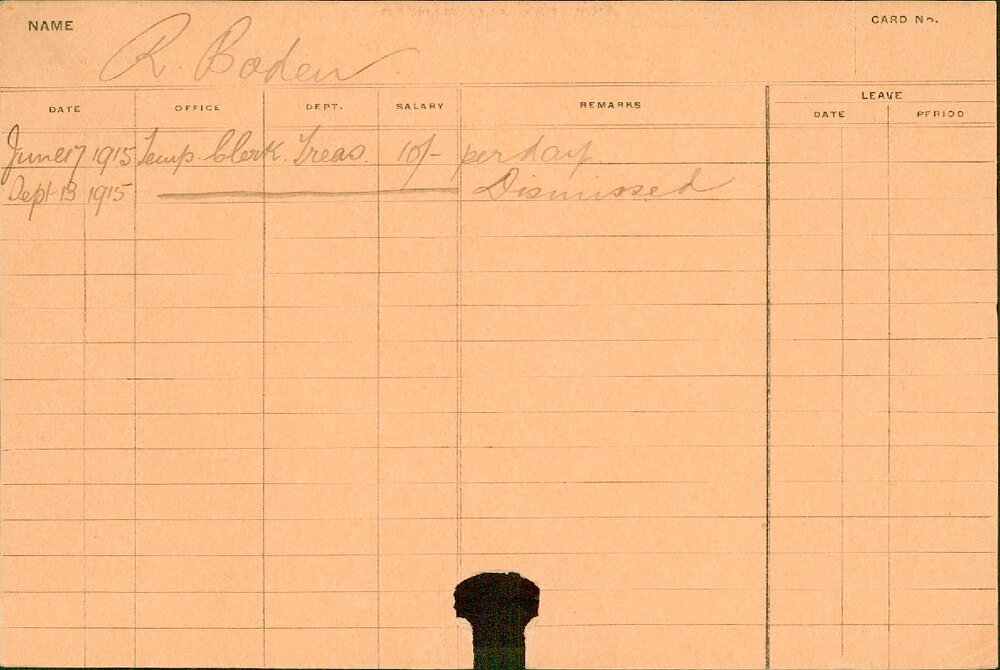 NAME R. Boden CARD No.
DATE OFFICE DEPT. SALARY REMARKS LEAVE
DATE PERIOD
June 17 1915 Temp. Clerk. Treas. 10/- per day
Sept 13 1915 Dismissed